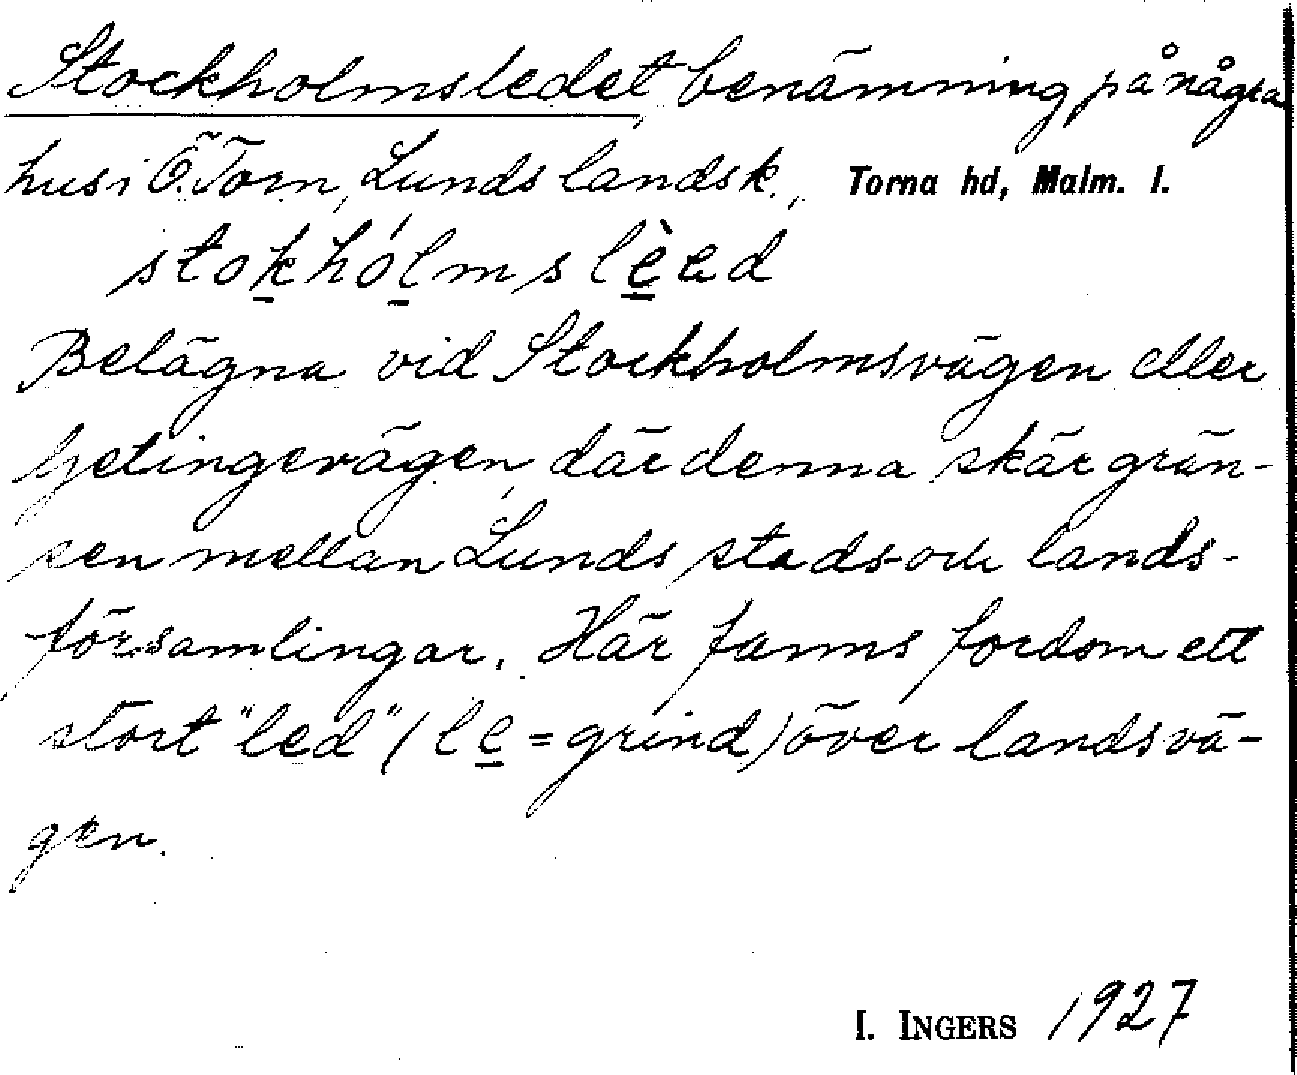 Stockholmsledet, benämning på några
hus i Ö. Torn, Lunds landsk., Torna hd, Malm. l.
stokhólmslèed
Belägna vid Stockholmsvägen eller
Getingevägen, där denna skär grän-
sen mellan Lunds stads- och lands-
församlingar. Här fanns fordom ett
stort "led" (le = grind) över landsvä-
gen.
I. INGERS 1927